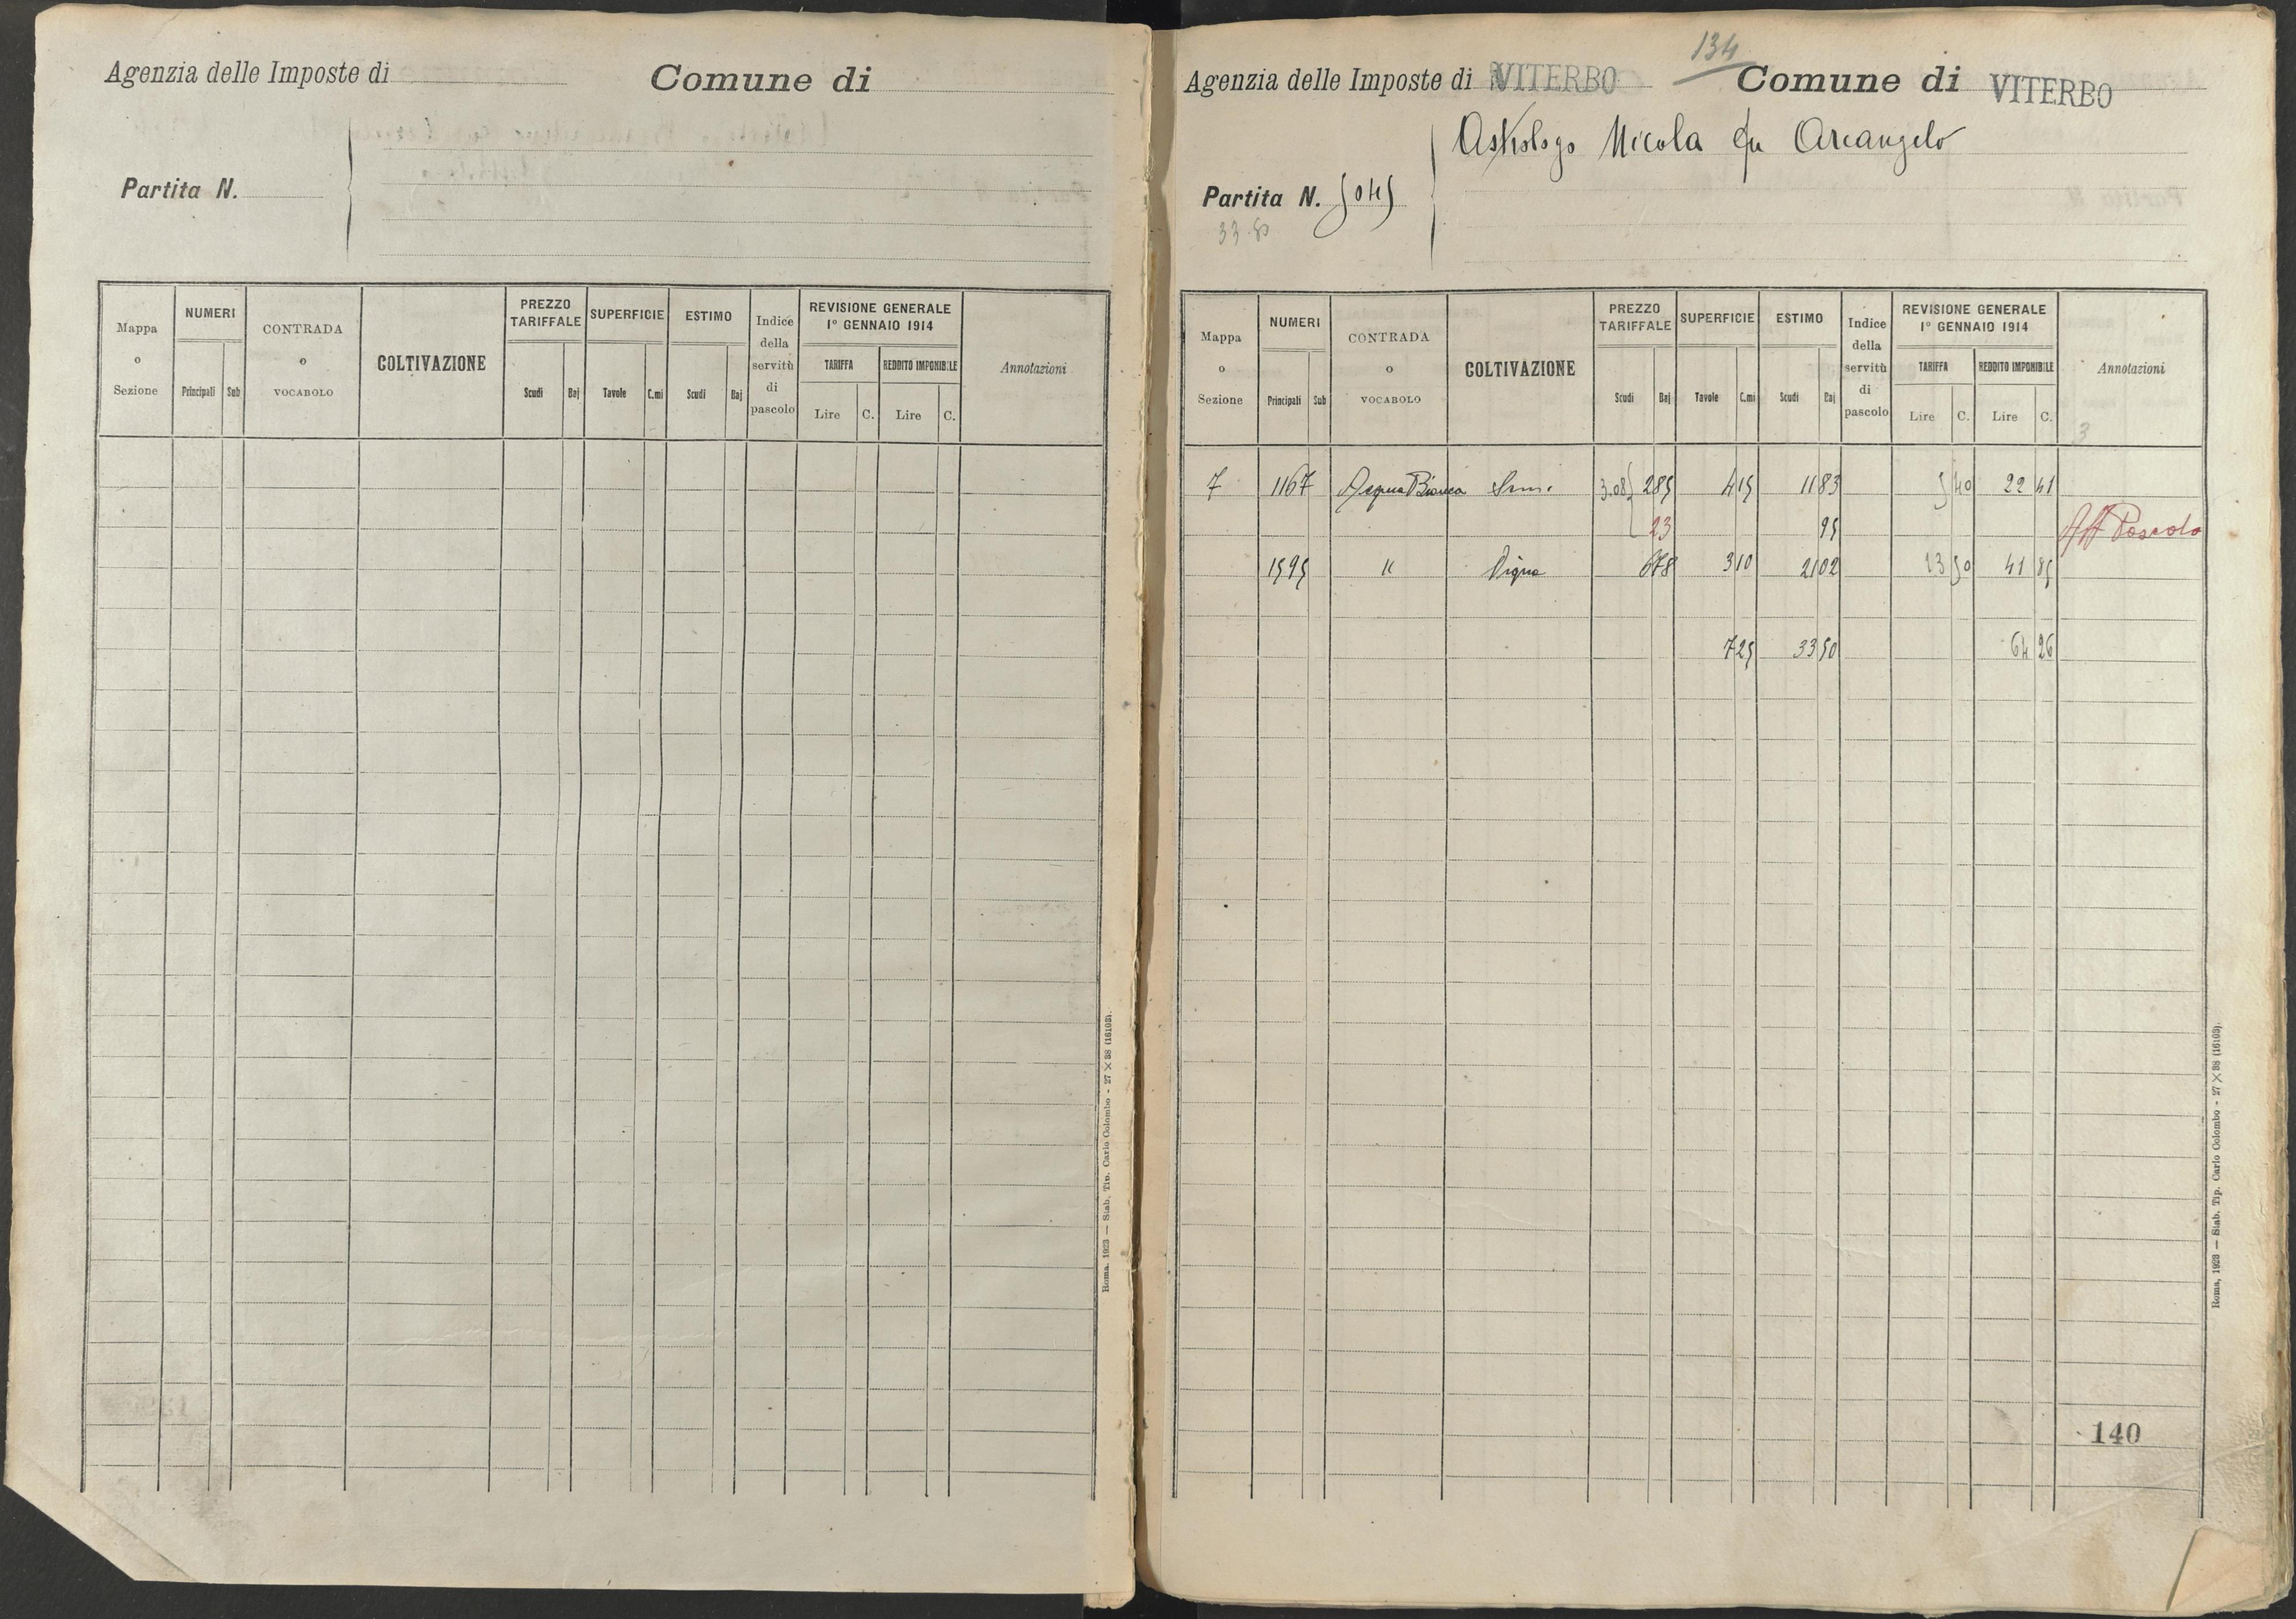 Agenzia delle Imposte di
Comune di
Partita N.
Mappa o Sezione
NUMERI
Principali
Sub
CONTRADA o VOCABOLO
COLTIVAZIONE
PREZZO TARIFFALE
Scudi
Baj
SUPERFICIE
Tavole
C.mi
ESTIMO
Scudi
Baj
Indice della servitù di pascolo
REVISIONE GENERALE
1° GENNAIO 1914
TARIFFA
Lire
C.
REDDITO IMPONIBILE
Lire
C.
Annotazioni
Roma. 1923 — Stab. Tip. Carlo Colombo - 27 X 38 (16103).
134
Agenzia delle Imposte di VITERBO
Comune di VITERBO
Astrologo Nicola fu Arcangelo
Partita N. 5045
33.50
Mappa o Sezione
NUMERI
Principali
Sub
CONTRADA o VOCABOLO
COLTIVAZIONE
PREZZO TARIFFALE
Scudi
Baj
SUPERFICIE
Tavole
C.mi
ESTIMO
Scudi
Baj
Indice della servitù di pascolo
REVISIONE GENERALE
1° GENNAIO 1914
TARIFFA
Lire
C.
REDDITO IMPONIBILE
Lire
C.
Annotazioni
3
7 1167 Acqua Bianca 3.08 285 415 1183 5 40 22 41
23 95 Aff Pascolo
1595 " Vigna 678 310 2102 13 50 41 85
725 3350 64 26
Roma, 1923 — Stab. Tip. Carlo Colombo - 27 X 38 (16103).
140